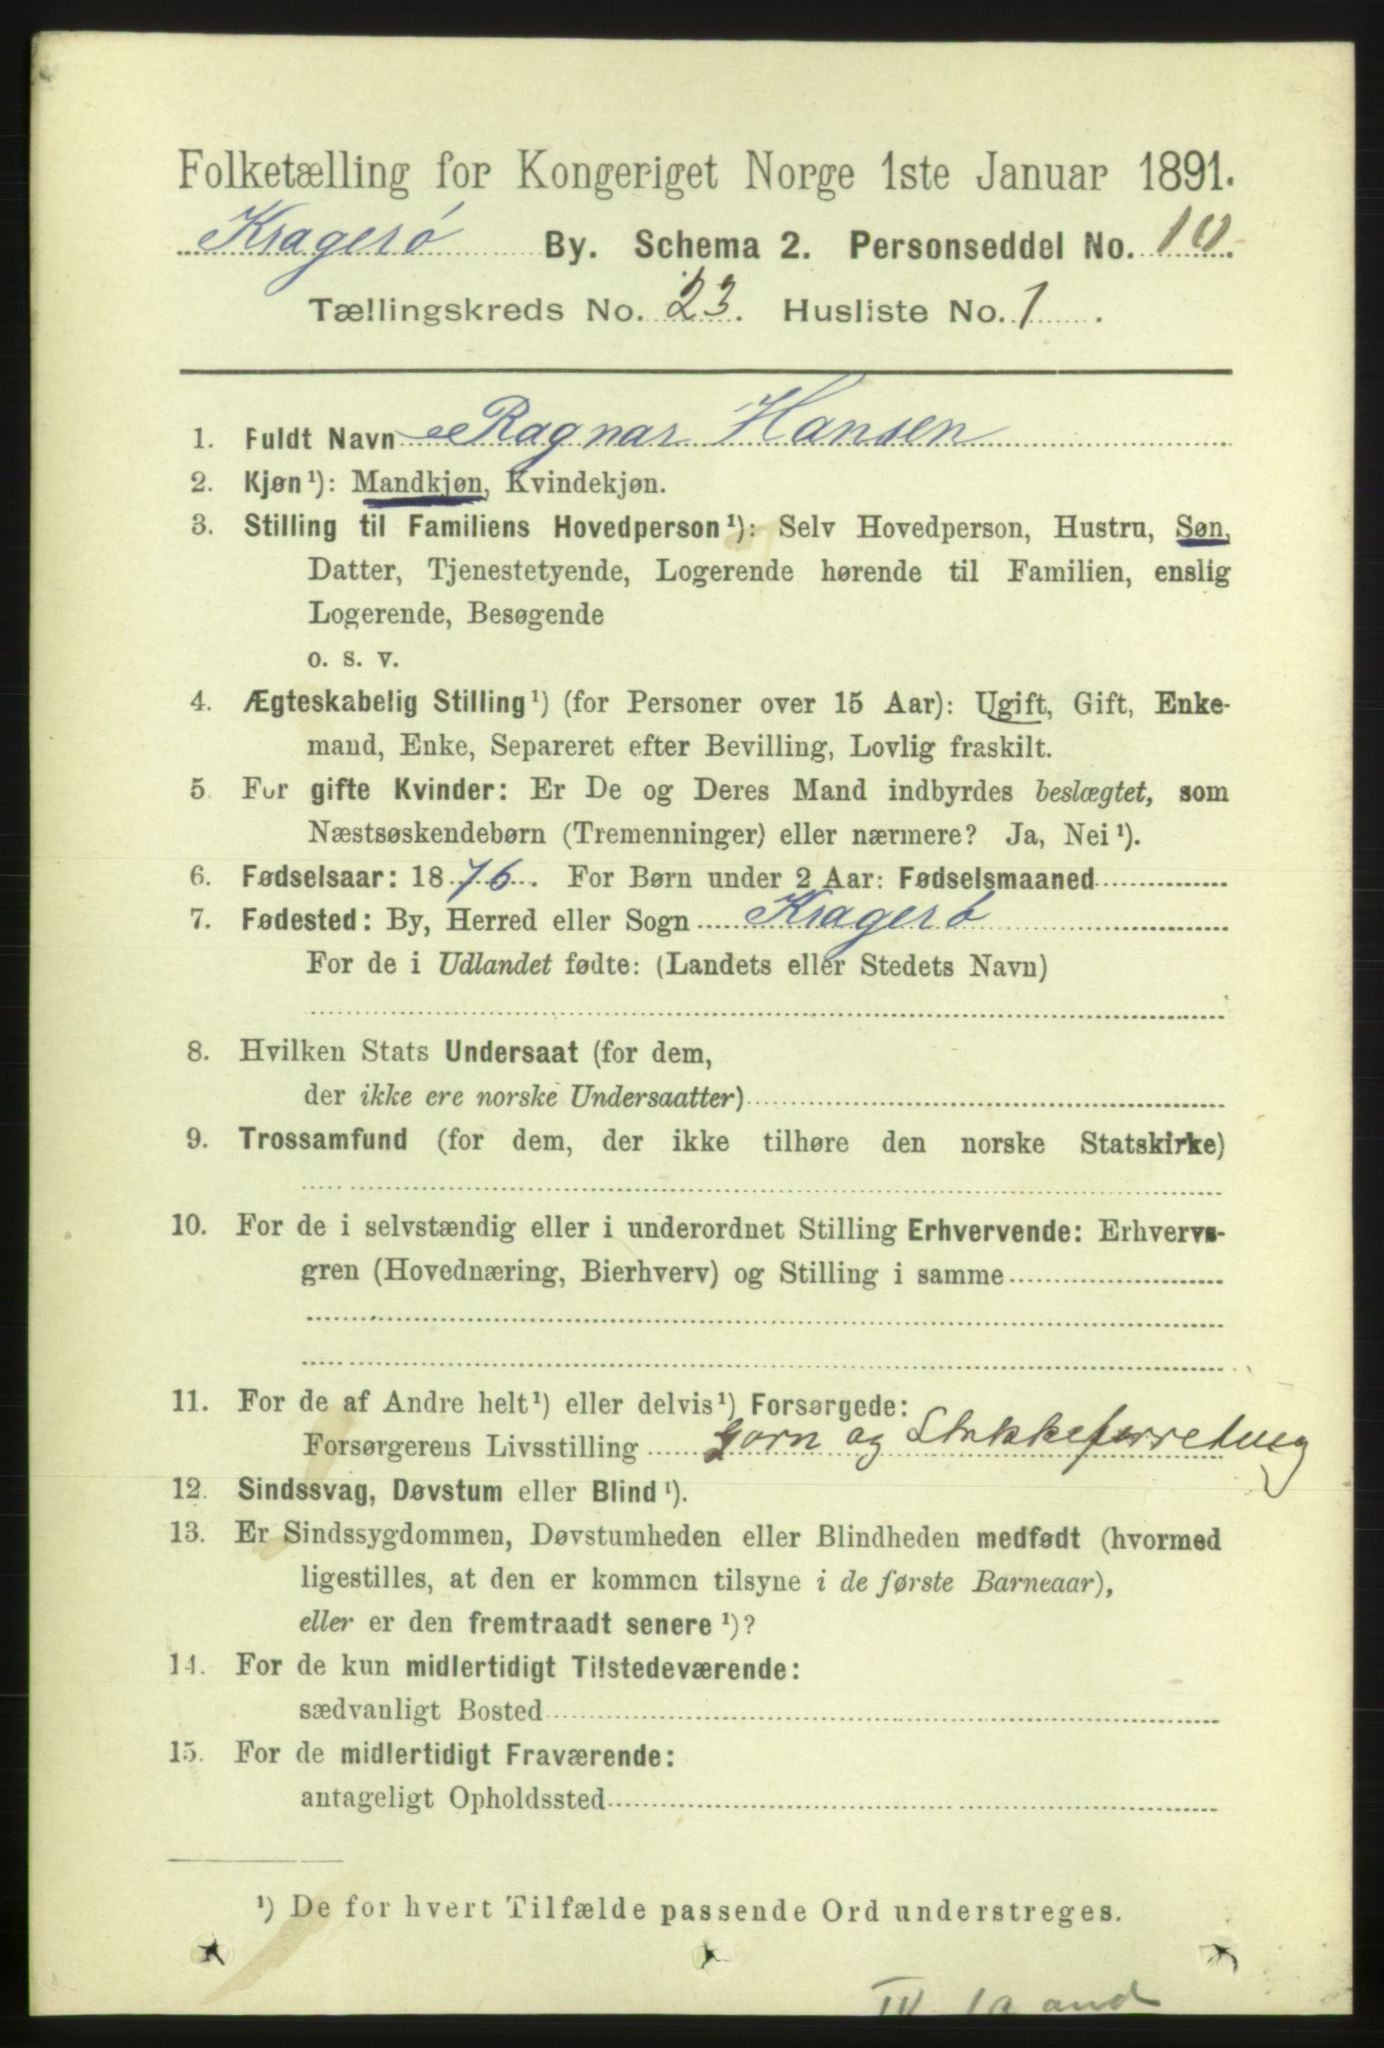 Folketælling for Kongeriget Norge 1ste Januar 1891.
Kragerø By. Schema 2. Personseddel No. 10.
Tællingskreds No. 23. Husliste No. 1.
1. Fuldt Navn Ragnar Hansen
2. Kjøn¹): Mandkjøn, Kvindekjøn.
3. Stilling til Familiens Hovedperson¹): Selv Hovedperson, Hustru, Søn,
Datter, Tjenestetyende, Logerende hørende til Familien, enslig
Logerende, Besøgende
o. s. v.
4. Ægteskabelig Stilling¹) (for Personer over 15 Aar): Ugift, Gift, Enke-
mand, Enke, Separeret efter Bevilling, Lovlig fraskilt.
5. For gifte Kvinder: Er De og Deres Mand indbyrdes beslægtet, som
Næstsøskendebørn (Tremenninger) eller nærmere? Ja, Nei¹).
6. Fødselsaar: 1876. For Børn under 2 Aar: Fødselsmaaned
7. Fødested: By, Herred eller Sogn Kragerø
For de i Udlandet fødte: (Landets eller Stedets Navn)
8. Hvilken Stats Undersaat (for dem,
der ikke ere norske Undersaatter)
9. Trossamfund (for dem, der ikke tilhøre den norske Statskirke)
10. For de i selvstændig eller i underordnet Stilling Erhvervende: Erhvervs-
gren (Hovednæring, Bierhverv) og Stilling i samme
11. For de af Andre helt¹) eller delvis¹) Forsørgede:
Forsørgerens Livsstilling Garn og Stukkeforretning
12. Sindssvag, Døvstum eller Blind¹).
13. Er Sindssygdommen, Døvstumheden eller Blindheden medfødt (hvormed
ligestilles, at den er kommen tilsyne i de første Barneaar),
eller er den fremtraadt senere¹)?
14. For de kun midlertidigt Tilstedeværende:
sædvanligt Bosted
15. For de midlertidigt Fraværende:
antageligt Opholdssted
¹) De for hvert Tilfælde passende Ord understreges.